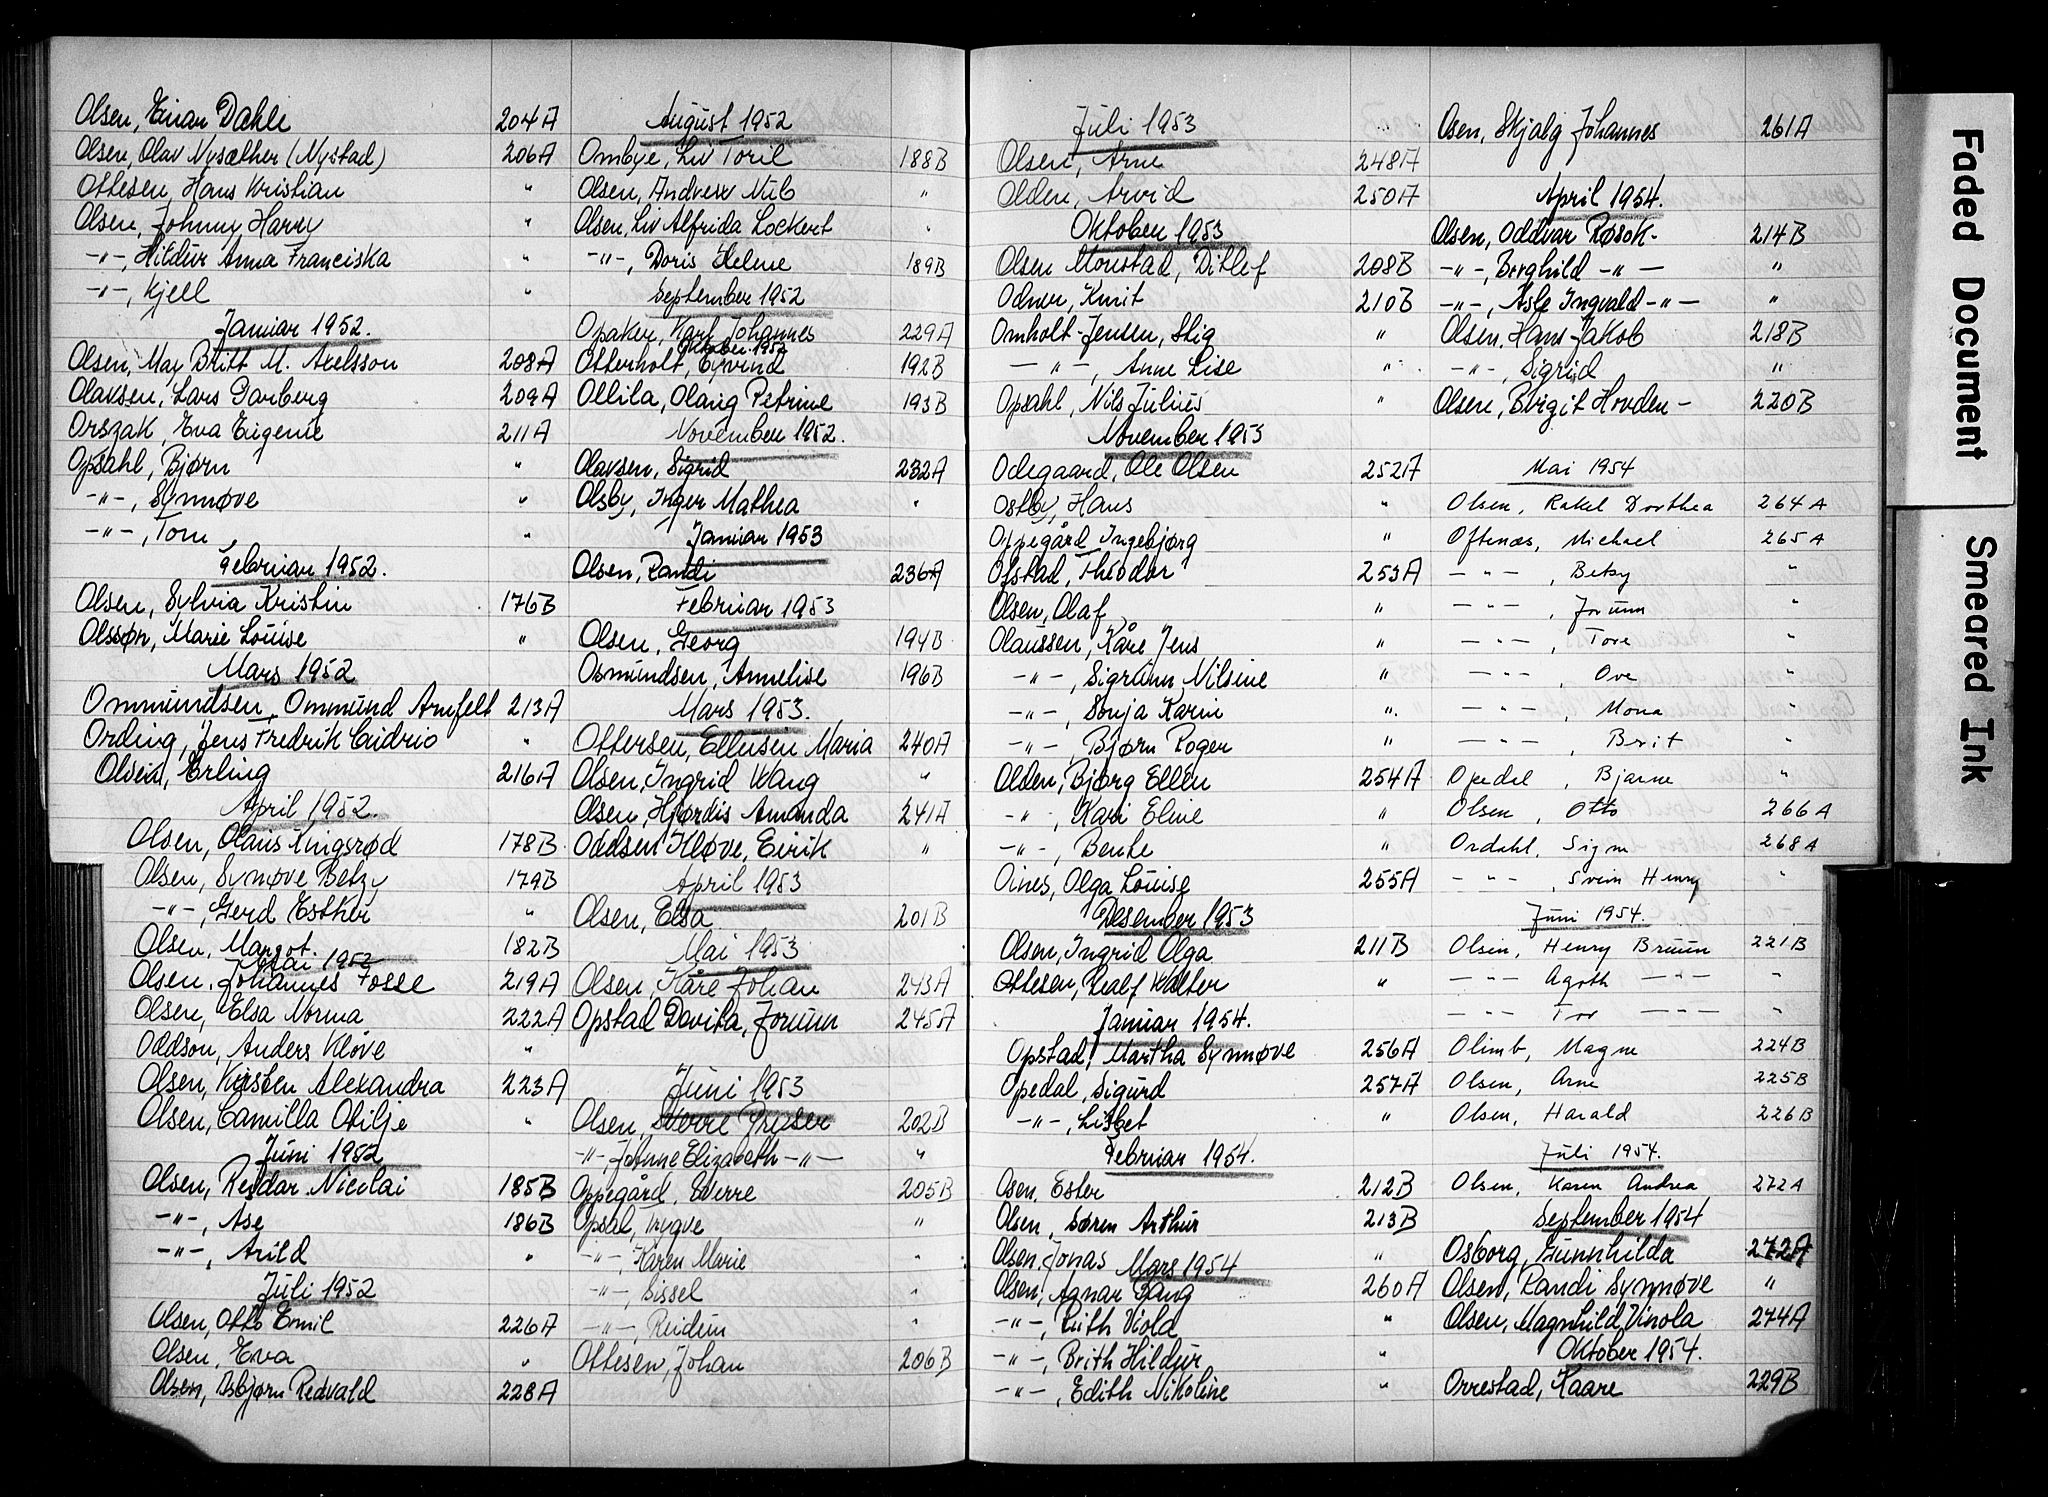 Olsen, Einar Dahle 204A
Olsen, Olav Nysæther (Nystad) 206A
Ottesen, Hans Kristian "
Olsen, Johnny Harry "
-"-, Hildur Anna Franciska "
-"-, Kjell "
Januar 1952.
Olsen, May Britt M. Axelsson 208A
Olavsen, Lars Garberg 209A
Orszak, Eva Eugenie 211A
Opsahl, Bjørn "
-"-, Synnøve "
-"-, Tom "
Februar 1952.
Olsen, Sylvia Kristin 176B
Olssøn, Marie Louise "
Mars 1952
Ommundsen, Ommund Arnfelt 213A
Ording, Jens Fredrik "
Olsen, Erling 216A
April 1952.
Olsen, Olaus Kingsrød 178B
Olsen, Synøve Betzy 179B
-"-, Gerd Esther "
Olsen, Margot. 182B
Mai 1952
Olsen, Johannes Fosse 219A
Olsen, Elsa Norma 222A
Oddson, Anders Kløve "
Olsen, Kirsten Alexandra 223A
Olsen, Camilla Otilje "
Juni 1952
Olsen, Reidar Nicolai 185B
-"-, Åse 186B
-"-, Arild "
Juli 1952
Olsen, Otto Emil 226A
Olsen, Eva "
Olsen, Asbjørn Redvald 228A
August 1952
Ombye, Liv Toril 188B
Olsen, Andreas Nib "
Olsen, Liv Alfrida Lockert "
-"-, Doris Helene 189B
September 1952
Opaker, Karl Johannes 229A
Oktober 1952
Otterholt, Eyvind 192B
Ollila, Olaug Petrine 193B
November 1952.
Olavsen, Sigrid 232A
Olsby, Inger Mathea "
Januar 1953
Olsen, Randi 236A
Februar 1953
Olsen, Georg 194B
Osmundsen, Annelise 196B
Mars 1953.
Ottersen, Ellensen Maria 240A
Olsen, Ingrid Wang "
Olsen, Hjørdis Amanda 241A
Oddsen Kløve, Eirik "
April 1953
Olsen, Elsa 201B
Mai 1953
Olsen, Kåre Johan 243A
Opstad Davita, Jorunn 245A
Juni 1953
Olsen, Sverre Fryser 202B
-"-, Johanne Elizabeth -"- "
Oppegård, Sverre 205B
Opsal, Trygve "
-"-, Karen Marie "
-"-, Sissel "
-"-, Reidun "
Ottesen, Johan 206B
Juli 1953
Olsen, Arne 248A
Olden, Arvid 250A
Oktober 1953
Olsen Monstad, Ditlef 208B
Odner, Knut 210B
Omholt-Jensen, Stig "
-"-, Anne Lise "
Opsahl, Nils Julius "
November 1953
Odegaard, Ole Olsen 252A
Ostby, Hans "
Oppegård, Ingebjørg "
Ofstad, Theodor 253A
Olsen, Olaf "
Olaussen, Kåre Jens "
-"-, Sigrunn Nilsine "
-"-, Sonja Karin "
-"-, Bjørn Roger "
Olden, Bjørg Ellen 254A
-"-, Kari Eline "
-"-, Bente "
Oines, Olga Louise 255A
Desember 1953
Olsen, Ingrid Olga 211B
Ottesen, Ralf Walter "
Januar 1954.
Opstad, Martha Synnøve 256A
Opedal, Sigurd 257A
-"-, Lisbet "
Februar 1954.
Osen, Ester 212B
Olsen, Søren Arthur 213B
Olsen, Jonas "
Mars 1954
Olsen, Agnar Bang 260A
-"-, Ruth Viola "
-"-, Brith Hildur "
-"-, Edith Nikoline "
Osen, Skjalg Johannes 261A
April 1954.
Olsen, Oddvar Røsok- 214B
-"-, Borghild -"- "
-"-, Asle Ingvald -"- "
Olsen, Hans Jakob 218B
-"-, Sigrid "
Olsen, Birgit Hovden- 220B
Mai 1954
Olsen, Rakel Dorthea 264A
Oftenæs, Michael 265A
-"-, Betsy "
-"-, Jorunn "
-"-, Tore "
-"-, Ove "
-"-, Mona "
-"-, Brit "
Opedal, Bjarne "
Olsen, Otto 266A
Ordahl, Signe 268A
-"-, Svein Henry "
Juni 1954.
Olsen, Henry Bruun 221B
-"- Agoth -"- "
-"- Tor -"- "
Olimb, Magne 224B
Olsen, Arne 225B
Olsen, Harald 226B
Juli 1954.
Olsen, Karen Andrea 272A
September 1954
Osborg, Gunnhilda 272A
Olsen, Randi Synnøve "
Olsen, Magnhild Vinola 274A
Oktober 1954.
Orrestad, Kaare 229B
Faded Document
Smeared Ink